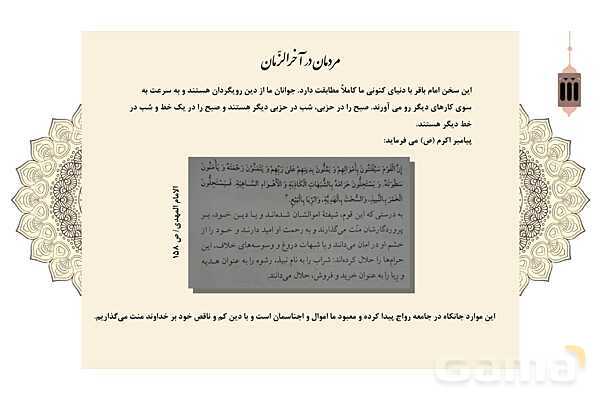 مردمان در آخرالزّمان
این سخن امام باقر با دنیای کنونی ما کاملاً مطابقت دارد. جوانان ما از دین رویگردان هستند و به سرعت به
سوی کارهای دیگر رو می آورند. صبح را در حزبی، شب در حزبی دیگر هستند و صبح را در یک خط و شب در
خط دیگر هستند.
پیامبر اکرم (ص) می فرماید:
إِنَّ الْقَوْمَ سَيُفْتَنُونَ بِأَمْوَالِهِمْ وَ يَمُنُّونَ بِدِينِهِمْ عَلَى رَبِّهِمْ وَ يَتَمَنَّوْنَ رَحْمَتَهُ وَ يَأْمَنُونَ
سَطْوَتَهُ. وَ يَسْتَحِلُّونَ حَرَامَهُ بِالشُّبُهَاتِ الْكَاذِبَةِ وَ الْأَهْوَاءِ السَّاهِيَةِ. فَيَسْتَحِلُّونَ
الْخَمْرَ بِالنَّبِيذِ، وَالسُّحْتَ بِالْهَدِيَّةِ، وَالرِّبَا بِالْبَيْعِ.
به درستی که این قوم، شیفتۀ اموالشان شده‌اند و با دین خود، بر
پروردگارشان منّت می‌گذارند و به رحمت او امید دارند و خود را از
خشم او در امان می‌دانند و با شبهات دروغ و وسوسه‌های خلاف، این
حرام‌ها را حلال کرده‌اند: شراب را به نام نبیذ، رشوه را به عنوان هدیه
و ربا را به عنوان خرید و فروش، حلال می‌دانند.
الامام المهدی/ ص ۱۵۸
این موارد جانکاه در جامعه رواج پیدا کرده و معبود ما اموال و اجناسمان است و با دین کم و ناقص خود بر خداوند منت می‌گذاریم.
Gama